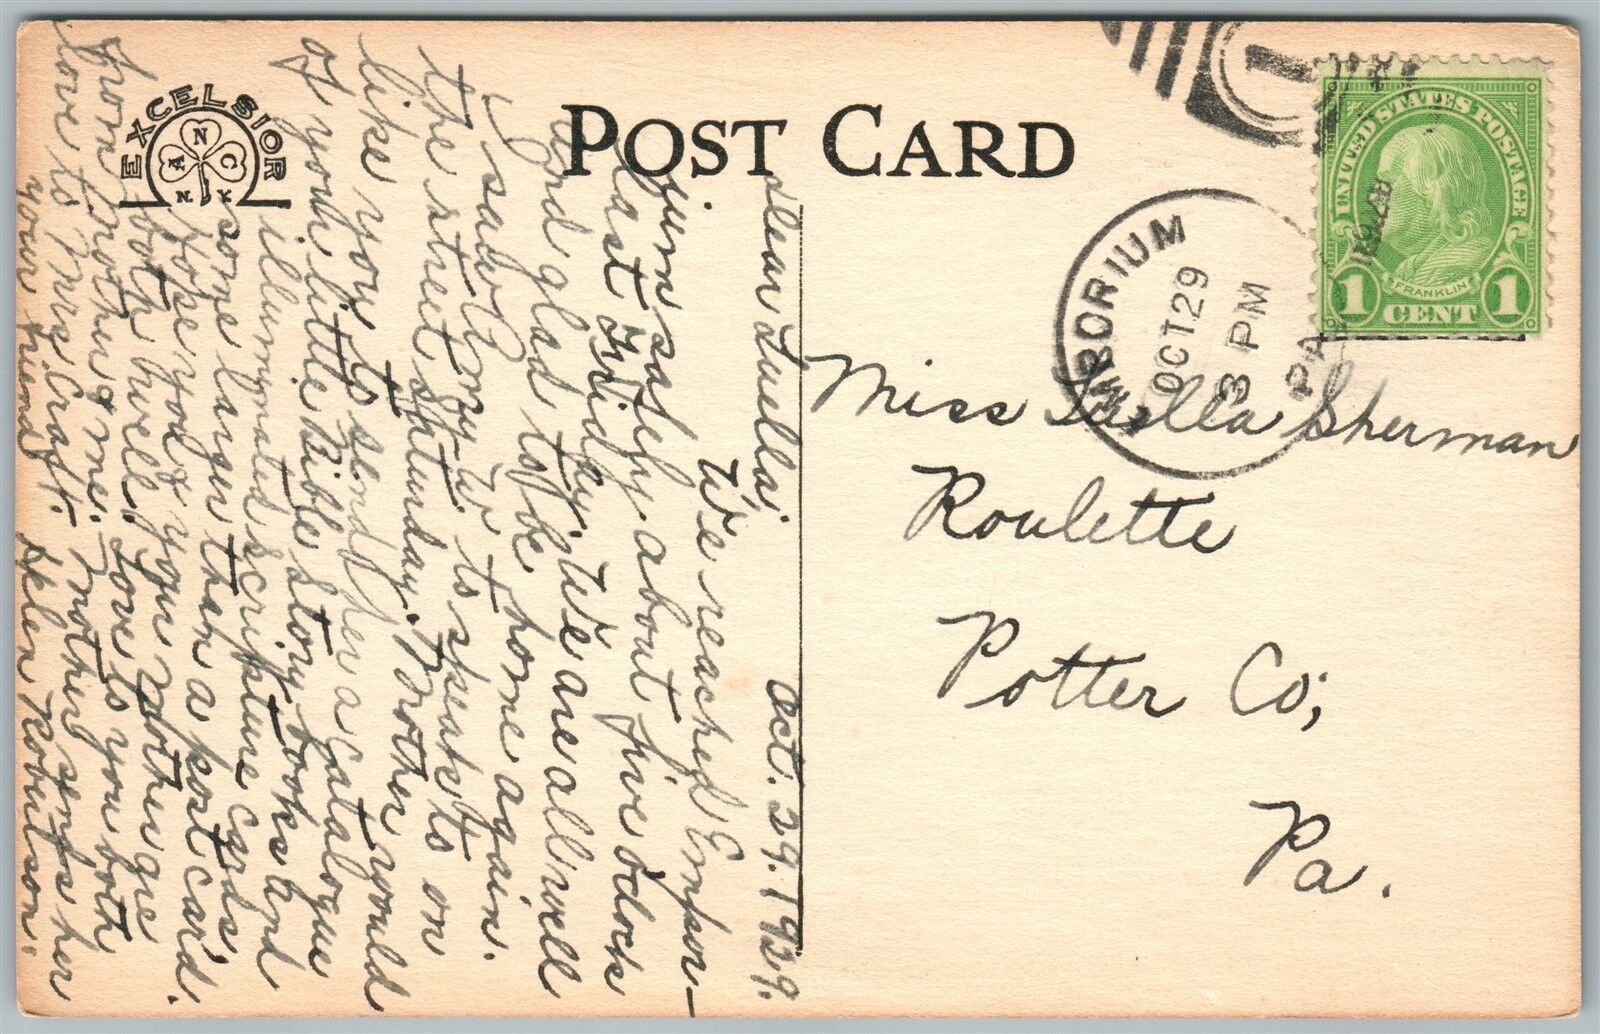 POST CARD
EXCELSIOR
A N C
N. Y.
UNITED STATES POSTAGE
FRANKLIN
1 CENT 1
1
EMPORIUM
OCT 29
3 PM
PA
Miss Luella Sherman
Roulette
Potter Co;
Pa.
Oct. 29. 1929.
Dear Luella;
We reached Empor-
ium safely about five oclock
last Friday. We are all well
and glad to be home again.
I saw Amy W to speak to on
the street Saturday. Mother would
like you to send her a catalogue
of your little Bible story books and
illumynated scripture cards
some larger than a post card.
Hope you & your Mother are
both well. Love to you both
from Mother & me. Mother sends her
love to Mrs Craft.
your friend Helen Robinson.